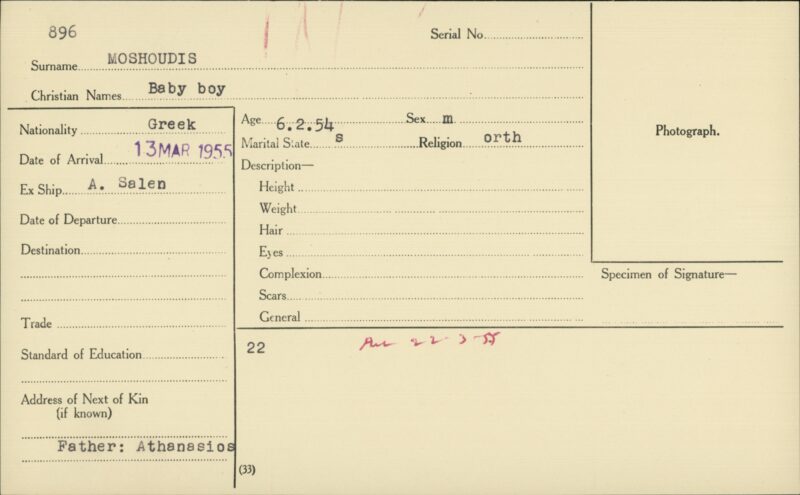 896
Serial No.
Surname MOSHOUDIS
Christian Names Baby boy
Nationality Greek
Date of Arrival 13 MAR 1955
Ex Ship A. Salen
Date of Departure
Destination
Trade
Standard of Education
Address of Next of Kin
(if known)
Father: Athanasios
Age 6.2.54 Sex m
Marital State s Religion orth
Description—
Height
Weight
Hair
Eyes
Complexion
Scars
General
22
22-3-55
(33)
Photograph.
Specimen of Signature—